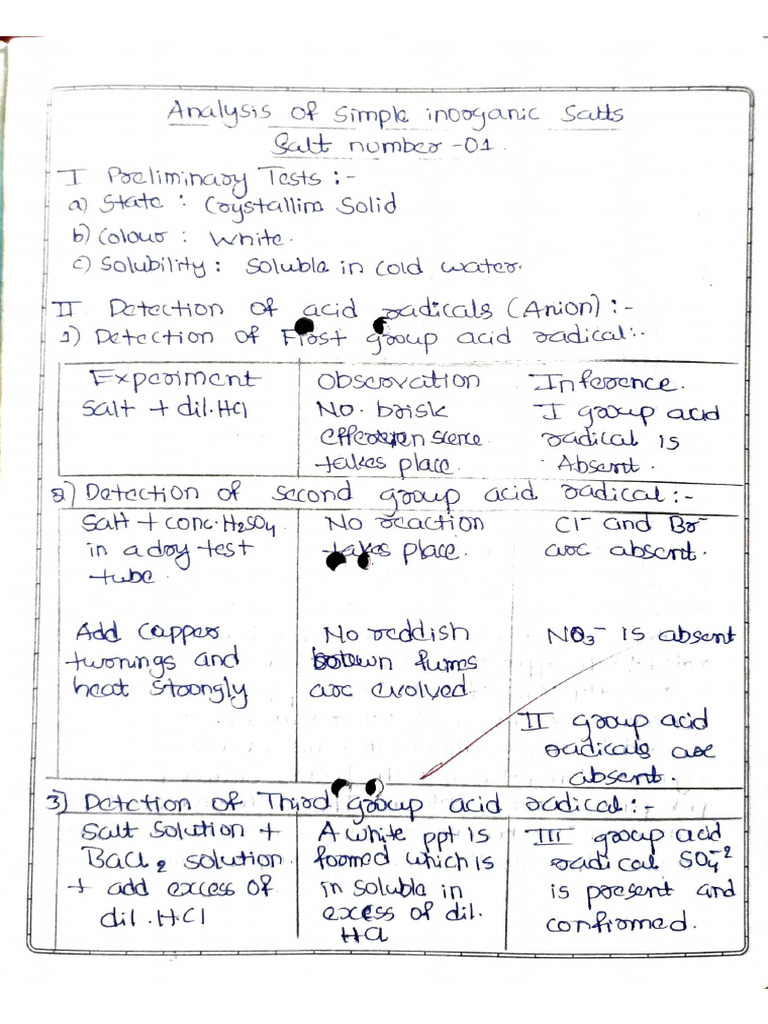 Analysis of simple inorganic Salts
Salt number -01.
I Preliminary Tests :-
a) State : Crystallin Solid
b) Colour : White.
c) Solubility : Soluble in cold water.
II Detection of acid radicals (Anion) :-
1) Detection of First group acid radical:-
Experiment Observation Inference.
Salt + dil.HCl No brisk I group acid
effervenscence radical is
takes place. Absent.
2) Detection of second group acid radical :-
Salt + conc.H2SO4 No reaction Cl- and Br-
in a dry test takes place. are absent.
tube.
Add copper No reddish NO3- is absent
turnings and brown fumes
heat strongly are evolved
II group acid
radicals are
absent.
3) Detection of Third group acid radical :-
Salt solution + A white ppt is III group acid
BaCl2 solution formed which is radical SO4-2
+ add excess of in soluble in is present and
dil.HCl excess of dil. confirmed.
HCl